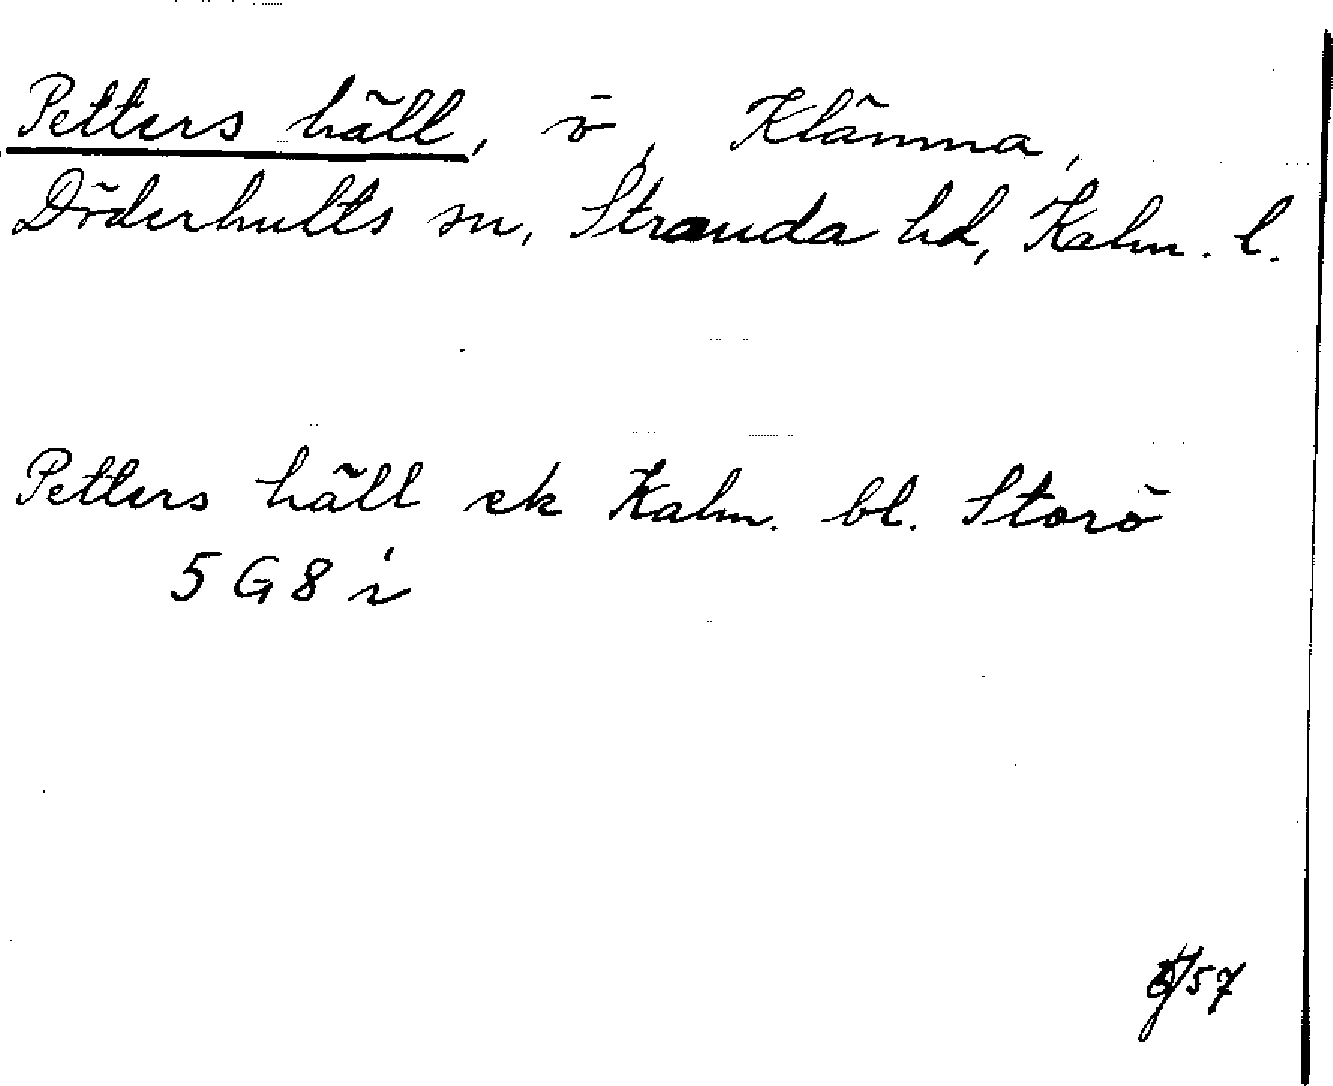 Petters häll, ö, Klämna,
Döderhults sn, Stranda hd, Kalm. l.
Petters häll ek Kalm. bl. Storö
5 G 8 i
57